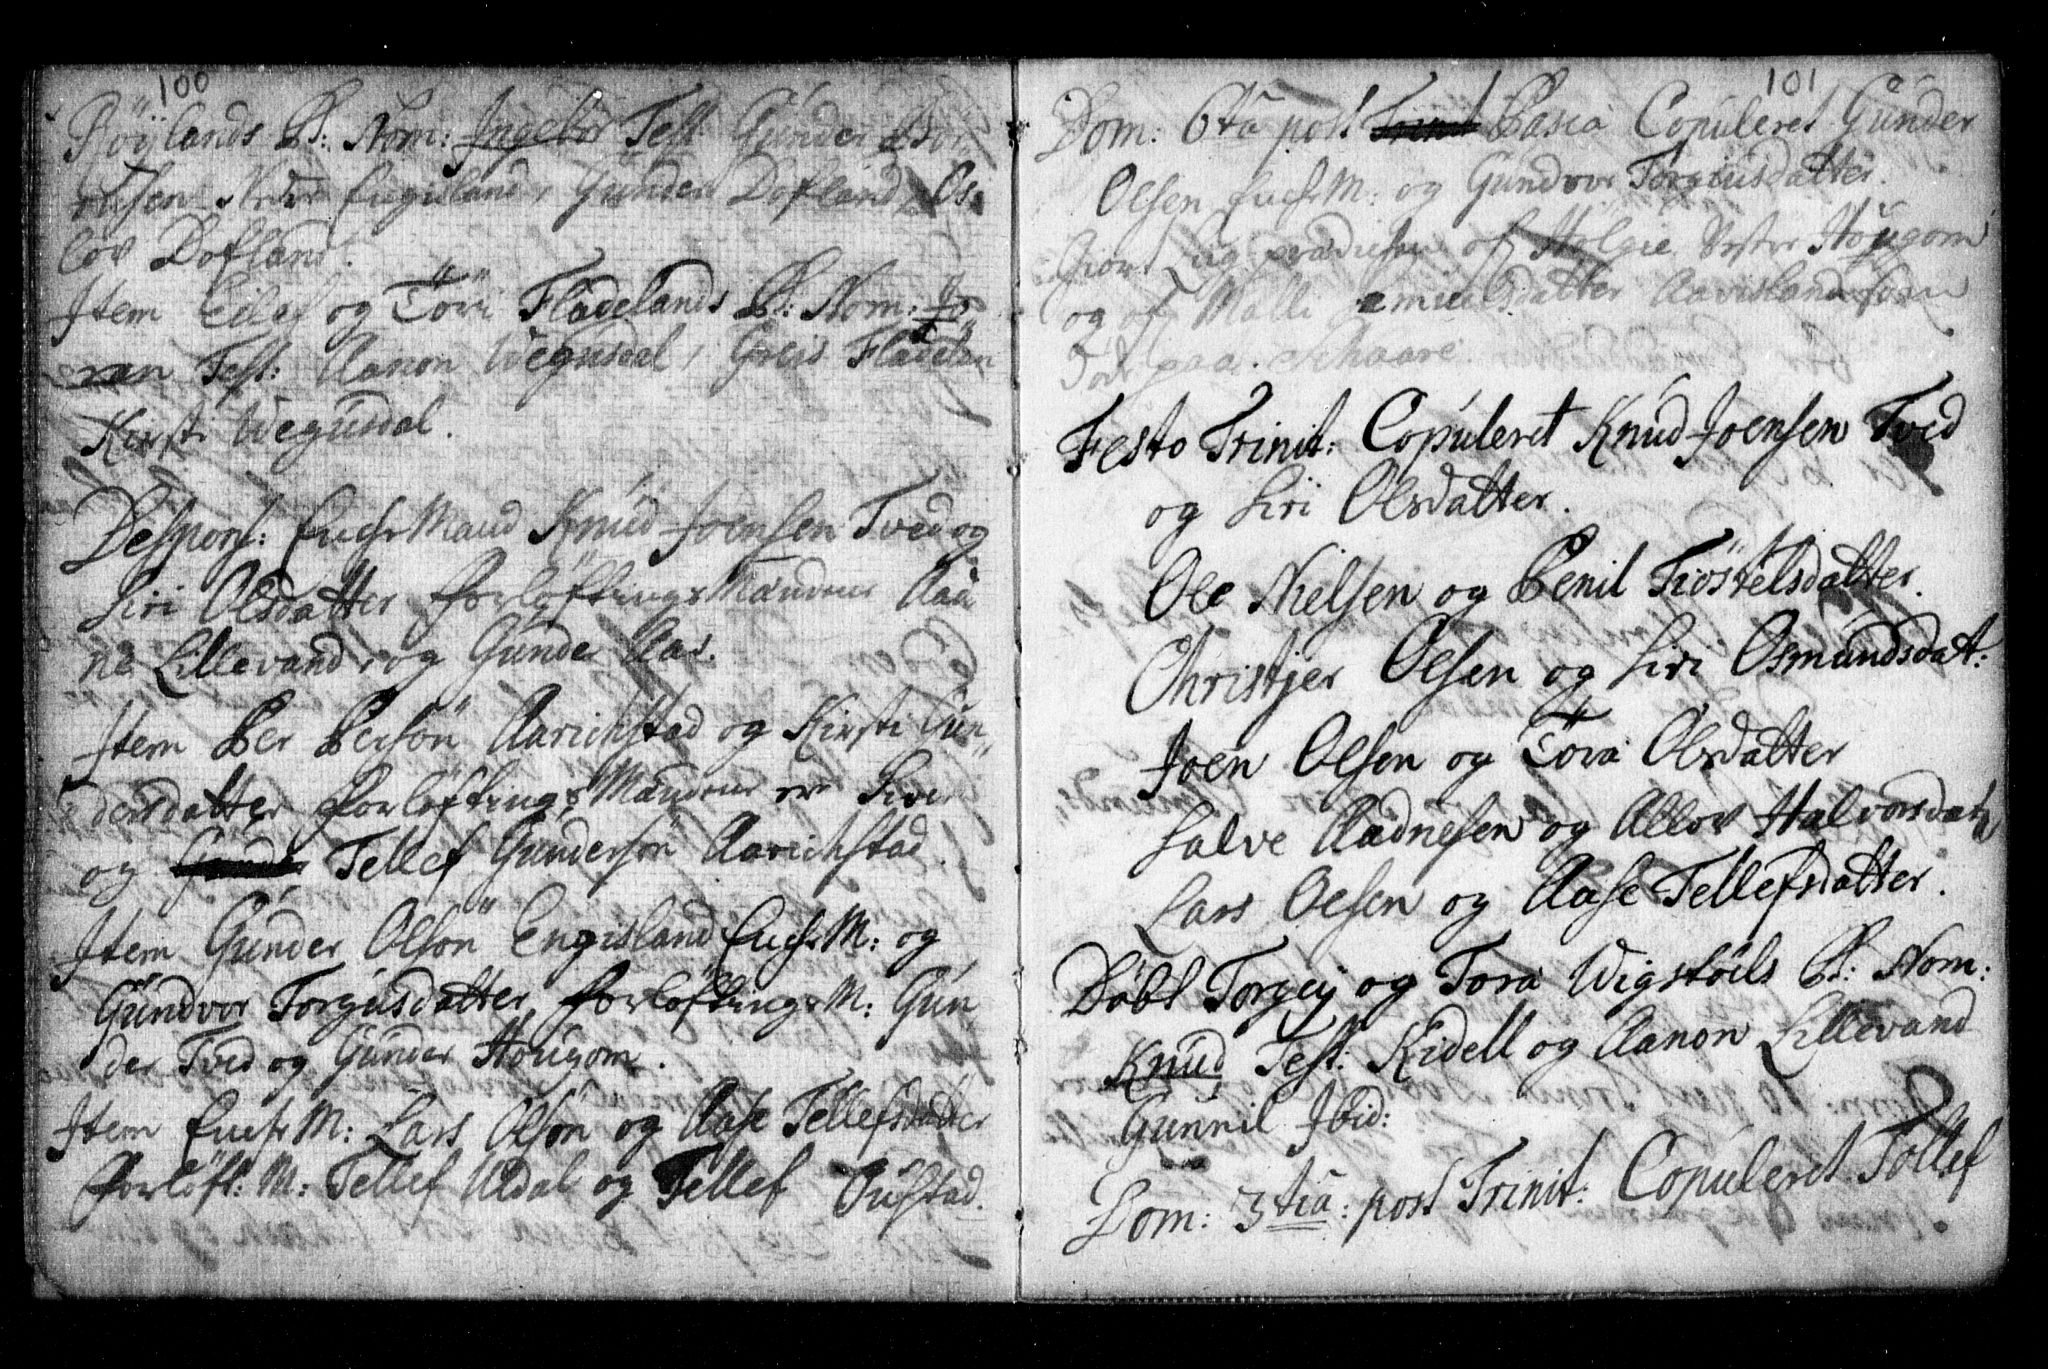 100
Röylands B: Nom: Ingebor Test Gunder
Engisland, Gunder Dofland, Os„
lov Dofland.
Item Eilef og Töri Fladelands B: Nom: Jö„
ran Test: Aanon Wegusdal, Greis Fladelan
Kirsti Wegusdal.
Despons: EncheMand Knud Joensen Tved og
Siri Olsdatter forløftings Mændene
ne Lillevand, og Gunder Aas.
Item Per Persön Aarichstad og Kirsti Gun„
dersdatter forløftings Mændene er Siver
og Tellef Gundersön Aarichstad.
Item Gunder Olsön Engisland EncheM: og
Gundvor Torgusdatter forløftingsM: Gun
der Tved og Gunder Höugom.
Item EncheM: Lars Olsön og Aase Tellefsdatter
forløft: M: Tellef Udal og Tellef Oufstad.
101
Dom: 6ta post Pasca Copuleret Gunder
Olsen EncheM: og Gundvor Torgiusdatter.
Giort Lag af Helgie Vester Höugom
og af Malli datter Aavisland som
paa
Festo Trinit: Copuleret Knud Joensen Tved
og Siri Olsdatter.
Ole Nielsen og Penil Tiöstelsdatter.
Christjer Olsen og Siri Osmundsdat:
Joen Olsen og Töra Olsdatter
Salve Aadnesen og Allov Halvorsdat
Lars Olsen og Aase Tellefsdatter.
Döbt Torgiy og Tora Wigstöils B: Nom:
Knud Test: Kidell og Aanon Lillevand
Gunnil Ibid:
Dom: 3tia: post Trinit: Copuleret Tollef